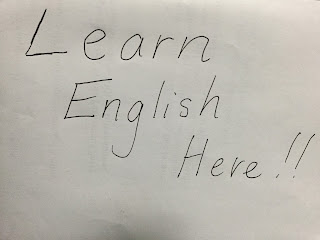 Learn
English
Here!!